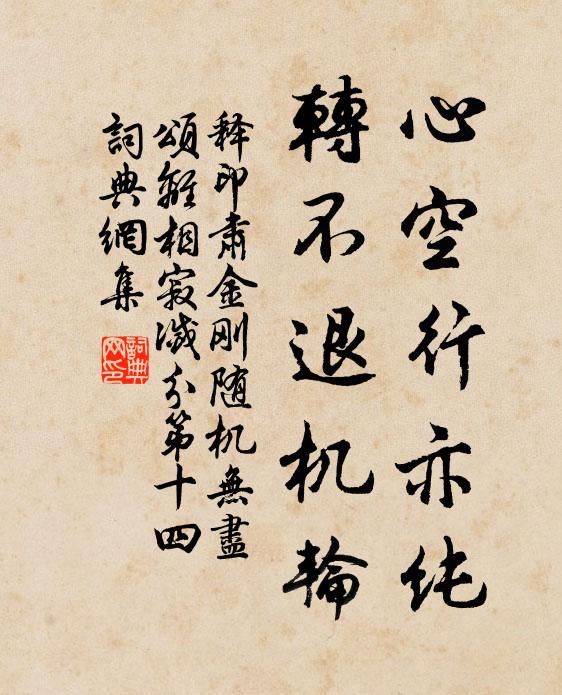 心空行亦纯
轉不退机輪
释印肃金刚随机無盡
頌離相寂滅分第十四
詞典網集
詞典網印